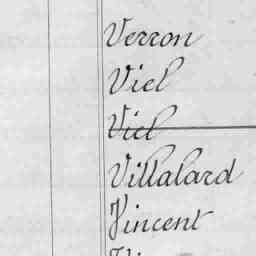 Verron
Viel
Viel
Villalard
Vincent